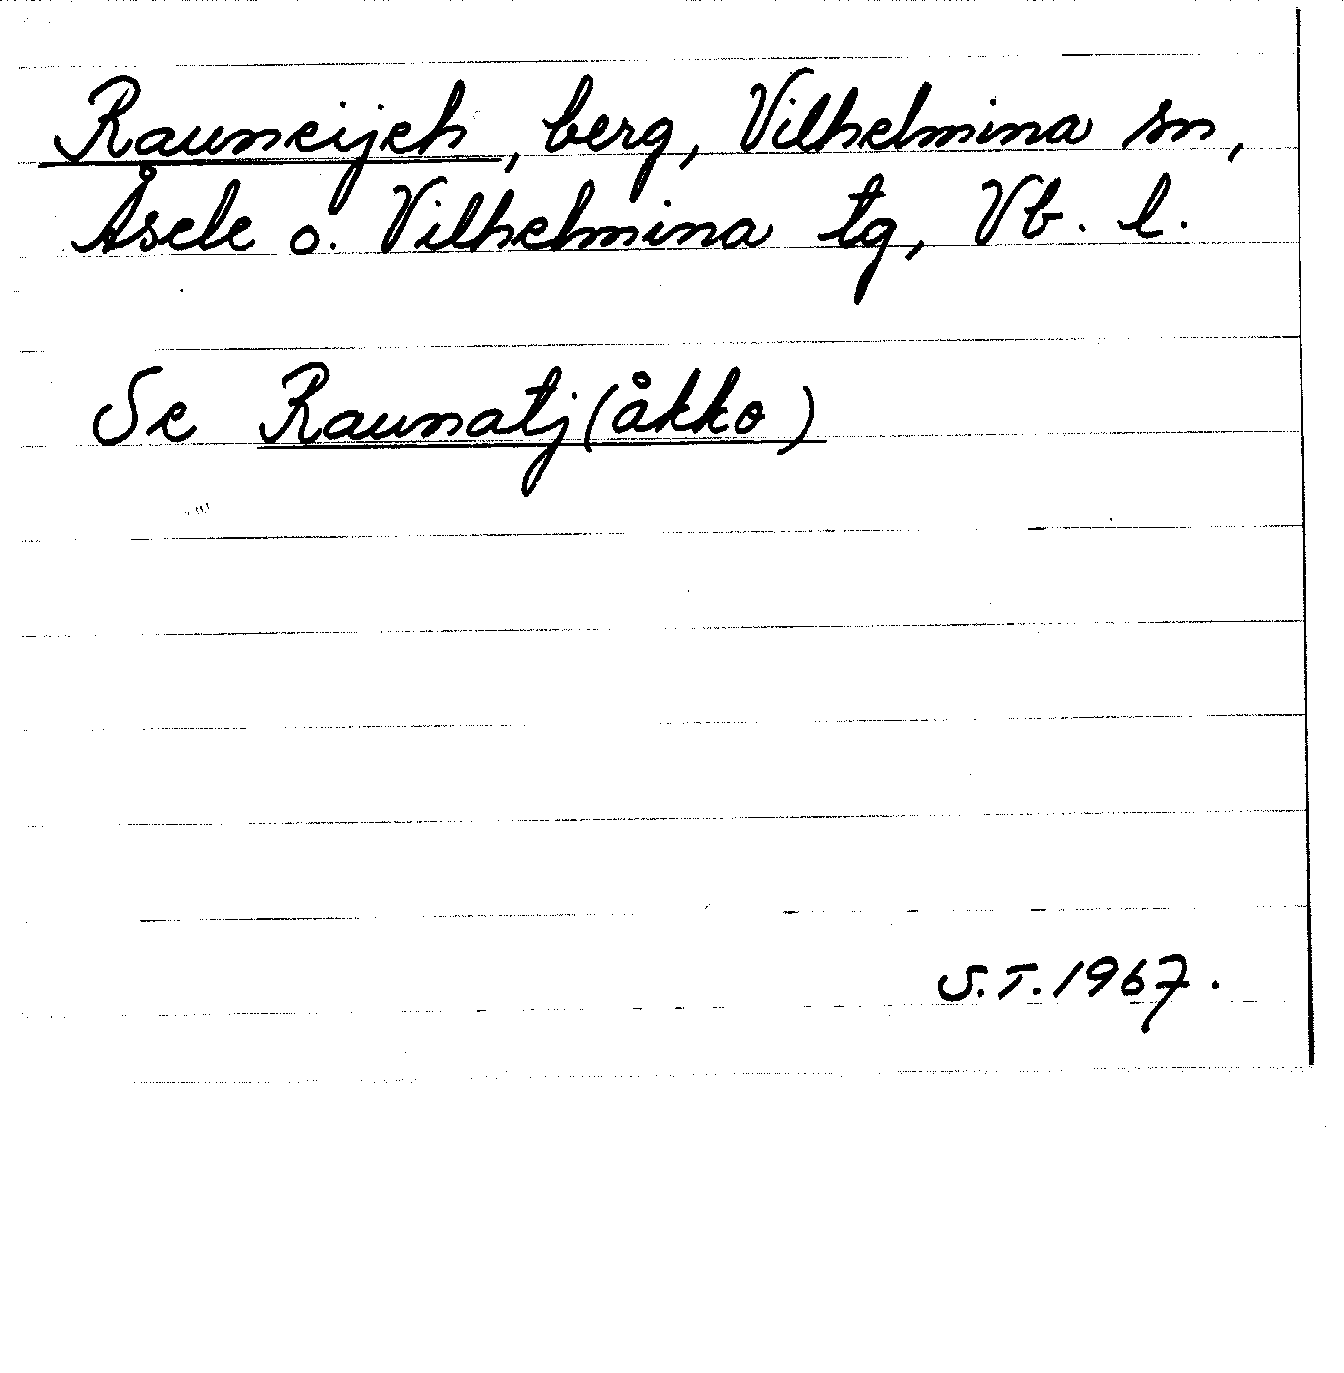 Rauneijeh, berg, Vilhelmina sn,
Åsele o. Vilhelmina tg, Vb. l.
Se Raunatj(åkko)
S.T. 1967.